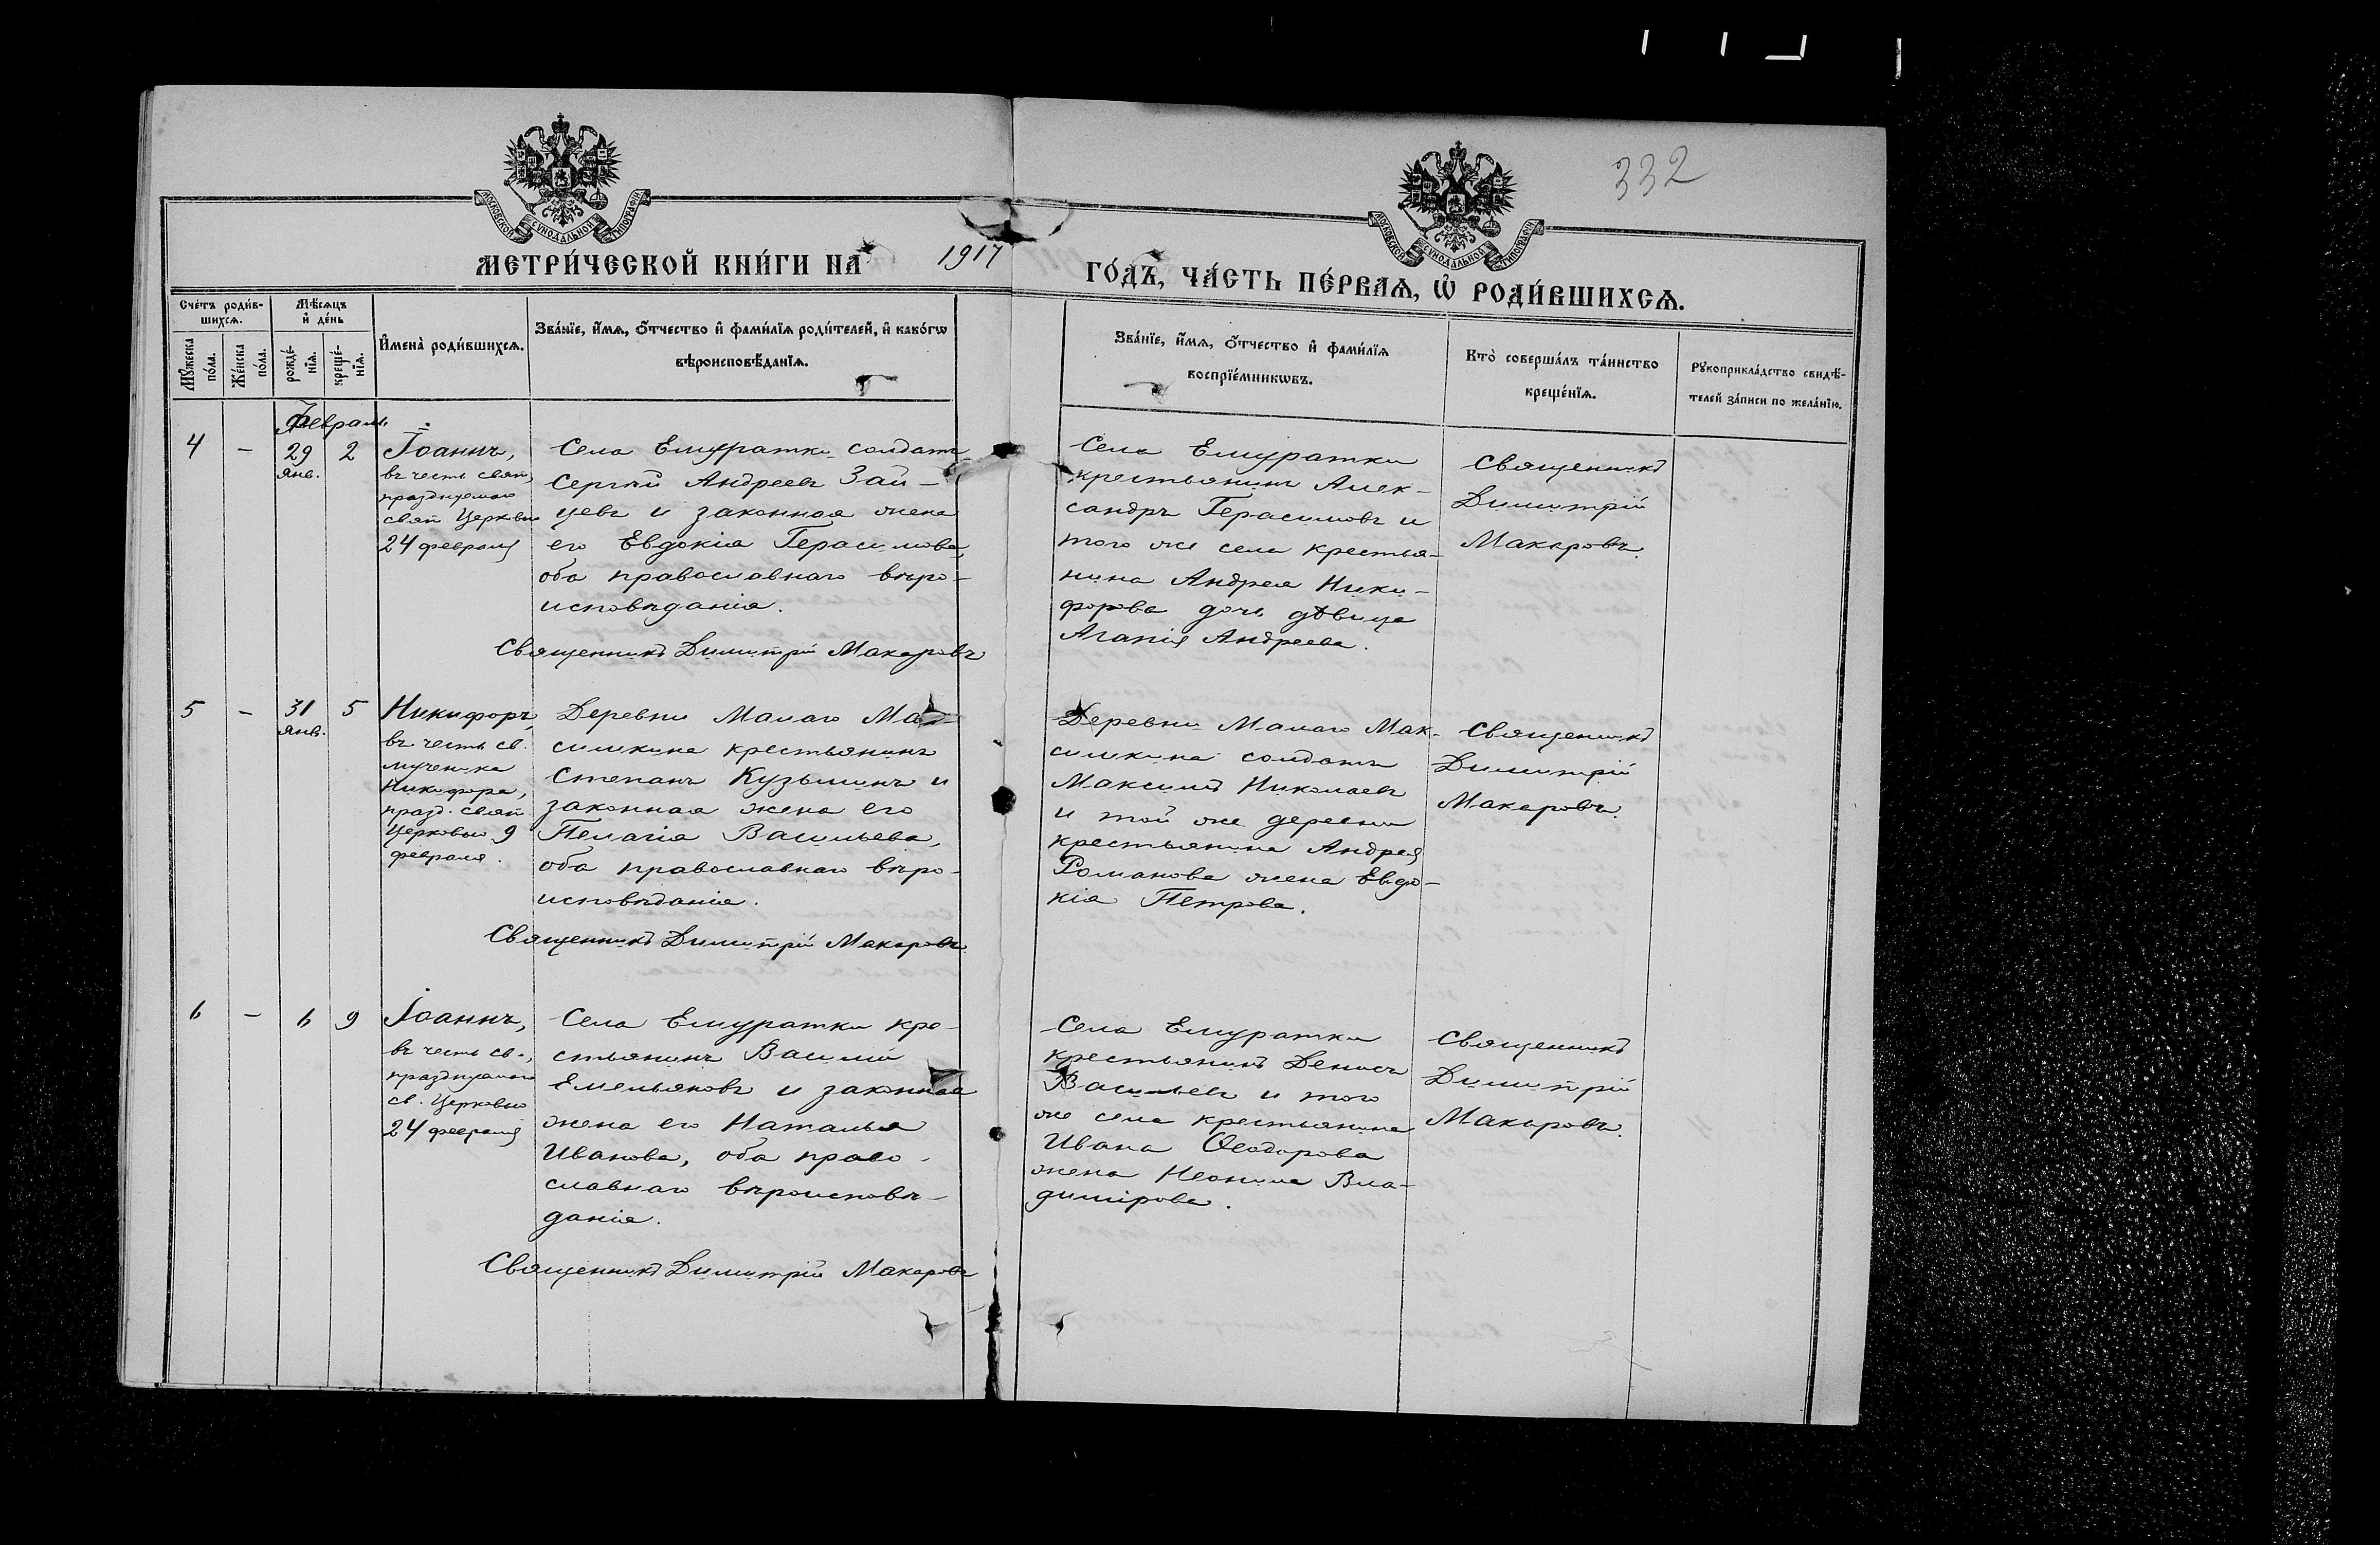 332
МОСКОВСКОЙ СѴНОДАЛЬНОЙ ТИПОГРАФІИ
МОСКОВСКОЙ СѴНОДАЛЬНОЙ ТИПОГРАФІИ
МЕТРИ́ЧЕСКОЙ КНИ́ГИ НА 1917 ГО́ДЪ, ЧА́СТЬ ПЕ́РВАѦ, Ѡ҆ РОДИ́ВШИХСѦ.
Сче́тъ роди́в-
шихсѧ.
Мѣ́сѧцъ
и҆ де́нь
Мꙋ́жеска
по́ла.
Же́нска
по́ла.
рожде́-
нїѧ.
креще́-
нїѧ.
И҆мена̀ роди́вшихсѧ.
Зва́нїе, и҆́мѧ, ѻ҆́тчество и҆ фами́лїѧ роди́телей, и҆ како́гѡ
вѣроисповѣ́данїѧ.
Зва́нїе, и҆́мѧ, ѻ҆́тчество и҆ фами́лїѧ
воспрїе́мникѡвъ.
Кто̀ соверша́лъ та́инство
креще́нїѧ.
Рꙋкоприкла́дство свидѣ́-
телей за́писи по жела́нїю.
Февраль
4 – 29 2
янв.
Іоаннъ,
въ честь свят.
празднуемаго
свят Церковью
24 февраля
Села Емуратки солдатъ
Сергій Андреевъ Зай-
цевъ и законная жена
его Евдокія Герасимова,
оба православнаго вѣро-
исповѣданія.
Священникъ Димитрій Макаровъ
Села Емуратки
крестьянинъ Алек-
сандръ Герасимовъ и
того же села крестья-
нина Андрея Ники-
форова дочь дѣвица
Агапія Андреева.
Священникъ
Димитрій
Макаровъ.
5 – 31 5
янв.
Никифоръ,
въ честь св.
мученика
Никифора,
празд. свят
Церковью 9
февраля.
Деревни Малаго Мак-
симкина крестьянинъ
Степанъ Кузьминъ и
законная жена его
Пелагія Васильева,
оба православнаго вѣро-
исповѣданія.
Священникъ Димитрій Макаровъ
Деревни Малаго Мак-
симкина солдатъ
Максимъ Николаевъ
и той же деревни
крестьянина Андрея
Романова жена Евдо-
кія Петрова.
Священникъ
Димитрій
Макаровъ.
6 – 6 9
Іоаннъ,
въ честь св.,
празднуемаго
св. Церковью
24 февраля
Села Емуратки кре-
стьянинъ Василій
Емельяновъ и законная
жена его Наталья
Иванова, оба право-
славнаго вѣроисповѣ-
данія.
Священникъ Димитрій Макаровъ
Села Емуратки
крестьянинъ Денисъ
Васильевъ и того
же села крестьянина
Ивана Ѳеодорова
жена Неонила Вла-
димірова.
Священникъ
Димитрій
Макаровъ.